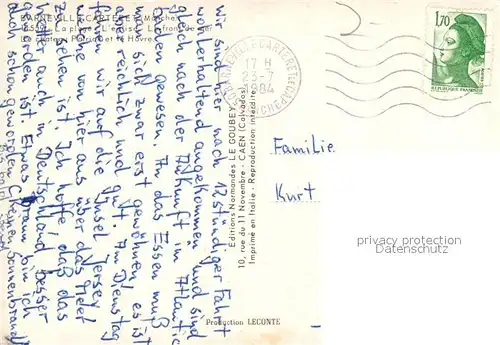 BARNEVILLE CARTERET (Manche)
La plage
wir sind hier nach 12stündiger Fahrt
wohlerhalten angekommen und sind
gleich nach der Ankunft im Atlantic
baden gewesen. An das Essen muß
man sich zwar erst gewöhnen, es ist
aber reichlich und gut. Am Dienstag
fahren wir auf die Insel Jersey
die von hier aus über das Meer
zu sehen ist. Ich hoffe, daß das
Wetter auch in Deutschland besser
geworden ist. Etwas braun bin ich
auch schon geworden (keinen Sonnenbrand)
Editions Normandes LE GOUBEY
10, rue du 11 Novembre - CAEN (Calvados)
Imprimé en Italie - Reproduction interdite
Production LECONTE
BARNEVILLE-CARTERET
17 H
23-7
1984
MANCHE
1,70
REPUBLIQUE FRANÇAISE
Familie
Kurt
privacy protection
Datenschutz